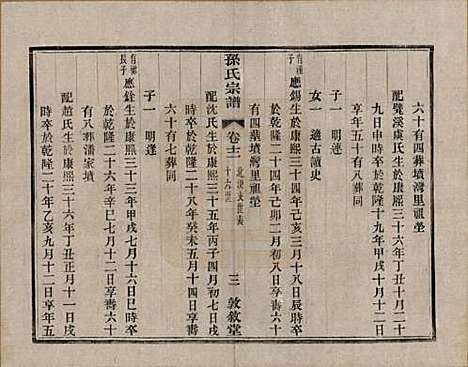 六十有四葬墳灣里祖塋
配甓溪虞氏生於康熙三十六年丁丑十月二十
九日申時卒於乾隆十九年甲戌十月二日
享年五十有八葬同
女一 適古瀆史
子一 明達
有禎次子 應錫生於康熙三十四年己亥三月十一日辰時卒
於乾隆二十四年己卯二月初八日享壽六十
有四葬墳灣里祖塋
孫氏宗譜 卷十二 北渡支世表 十六世 三 敦敘堂
配沈氏生於康熙三十五年丙子四月初七日戌
時卒於乾隆二十八年癸未五月十四日享壽
六十有七葬同
子一 明逢
有 長子 應銓生於康熙三十三年甲戌七月十六日巳時卒
於乾隆二十六年辛巳七月十二日享壽六十
有八葬潘家墳
配趙氏生於康熙三十六年丁丑正月十一日戌
時卒於乾隆二十年乙亥九月十二日享年五